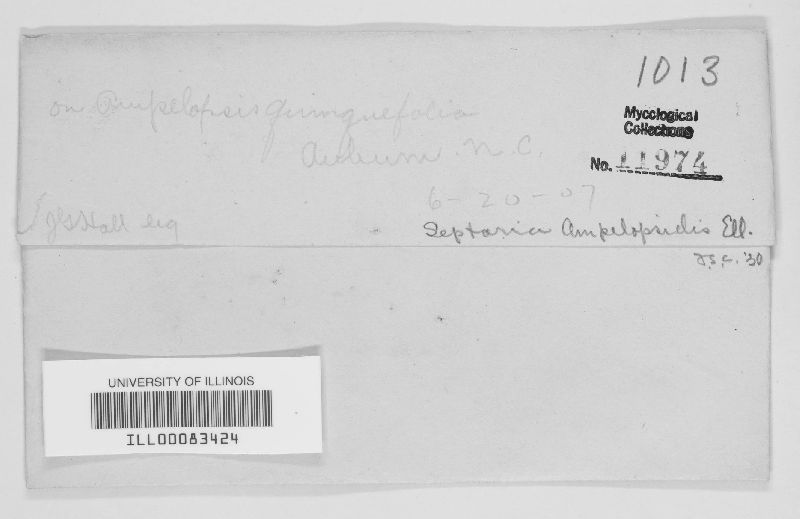 1013
on Ampelopsis quinquefolia
Mycological
Collections
Auburn. N.C.
No. 11974
6-20-07
J G Hall leg
Septoria Ampelopsidis Ell.
J.S.C. '30
UNIVERSITY OF ILLINOIS
ILL00083424